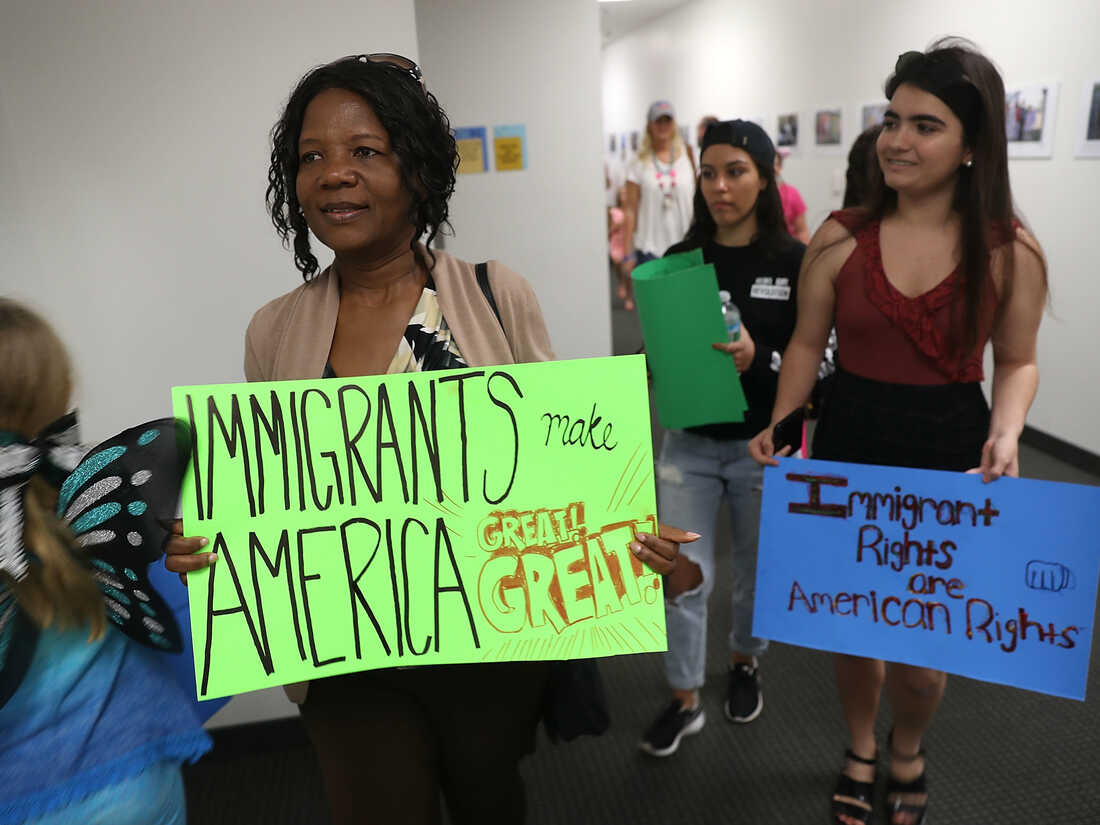 IMMIGRANTS make
AMERICA GREAT!
GREAT!
Immigrant
Rights
are
American Rights
REVOLUTION